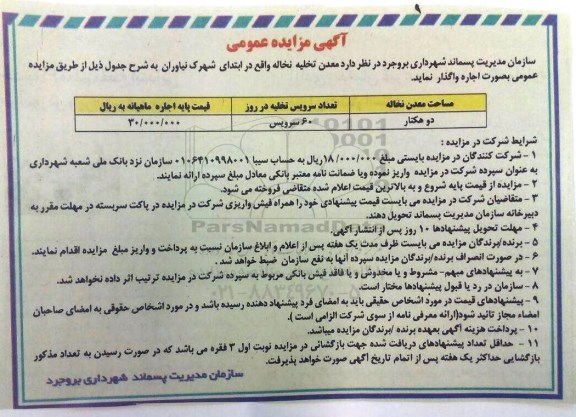 ۹
آگهی مزایده عمومی
سازمان مدیریت پسماند شهرداری بروجرد در نظر دارد معدن تخلیه نخاله واقع در ابتدای شهرک نیاوران به شرح جدول ذیل از طریق مزایده
عمومی بصورت اجاره واگذار نماید.
مساحت معدن نخاله تعداد سرویس تخلیه در روز قیمت پایه اجاره ماهیانه به ریال
دو هکتار ۶۰ سرویس ۳۰/۰۰۰/۰۰۰
شرایط شرکت در مزایده :
۱ - شرکت کنندگان در مزایده بایستی مبلغ ۱۸/۰۰۰/۰۰۰ ریال به حساب سیبا ۰۱۰۶۴۱۰۹۹۸۰۰۱ سازمان نزد بانک ملی شعبه شهرداری
به عنوان سپرده شرکت در مزایده واریز نموده ویا ضمانت نامه معتبر بانکی معادل مبلغ سپرده ارائه نمایند.
۲ - مزایده از قیمت پایه شروع و به بالاترین قیمت اعلام شده متقاضی فروخته می شود.
۳ - متقاضیان شرکت در مزایده می بایست قیمت پیشنهادی خود را همراه فیش واریزی شرکت در مزایده در پاکت سربسته در مهلت مقرر به
دبیرخانه سازمان مدیریت پسماند تحویل دهند.
۴ - مهلت تحویل پیشنهادها ۱۰ روز پس از انتشار آگهی.
۵ - برنده/برندگان مزایده می بایست ظرف مدت یک هفته پس از اعلام و ابلاغ سازمان نسبت به پرداخت و واریز مبلغ مزایده اقدام نمایند.
۶ - در صورت انصراف برنده/برندگان مزایده سپرده آنها به نفع سازمان ضبط خواهد شد .
۷ - به پیشنهادهای مبهم- مشروط و یا مخدوش و یا فاقد فیش بانکی مربوط به سپرده شرکت در مزایده ترتیب اثر داده نخواهد شد.
۸ - سازمان در رد یا قبول پیشنهادها مختار است.
۹ - پیشنهادهای قیمت در مورد اشخاص حقیقی باید به امضای فرد پیشنهاد دهنده رسیده باشد و در مورد اشخاص حقوقی به امضای صاحبان
امضاء مجاز تائید شود(ارائه معرفی نامه از سوی شرکت الزامی است ).
۱۰ - پرداخت هزینه آگهی بعهده برنده /برندگان مزایده میباشد.
۱۱ - حداقل تعداد پیشنهادهای دریافت شده جهت بازگشائی در مزایده نوبت اول ۳ فقره می باشد که در صورت رسیدن به تعداد مذکور
بازگشایی حداکثر یک هفته پس از اتمام تاریخ آگهی صورت خواهد پذیرفت.
سازمان مدیریت پسماند شهرداری بروجرد
ParsNamadData
۰۲۱-۸۸۳۴۹۶۷۰-۵